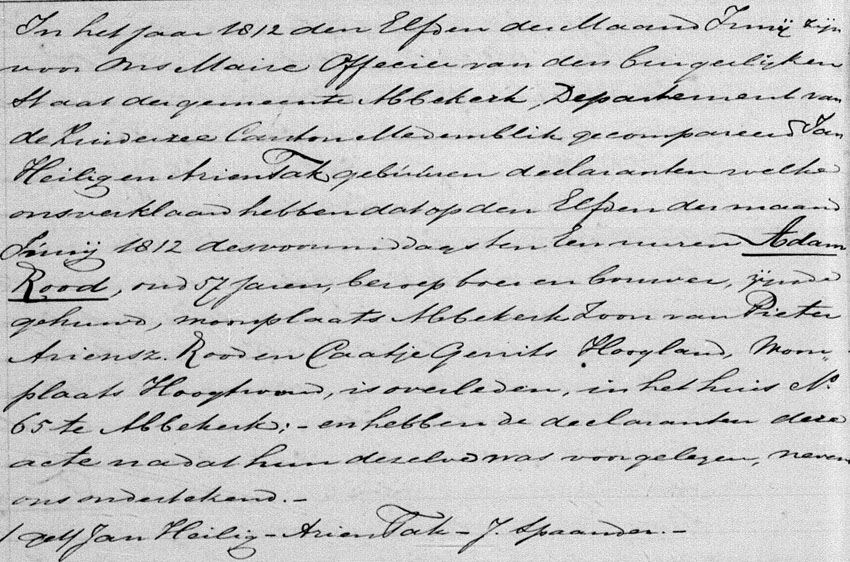 In het jaar 1812 den Elfden der Maand Junij zijn
voor Ons Maire Officier van den burgerlijken
Staat der gemeente Abbekerk, Departement van
de Zuiderzee Canton Medemblik gecompareerd Jan
Heilig en Arien Tak gebuuren declaranten welke
ons verklaard hebben dat op den Elfden der maand
Junij 1812 des voormiddags ten Een uuren Adam
Rood, oud 57 Jaren, beroep boer en bouwer, zijnde
gehuwd, woonplaats Abbekerk Zoon van Pieter
Ariensz. Rood en Caatje Gerrits Hoogland, Woon-
plaats Hoogtwoud, is overleden, in het huis No.
65 te Abbekerk; - en hebben de declaranten deze
acte na dat hun dezelve was voorgelezen, neven
ons ondertekend. -
/ get/ Jan Heilig - Arien Tak - J. Spaander. -